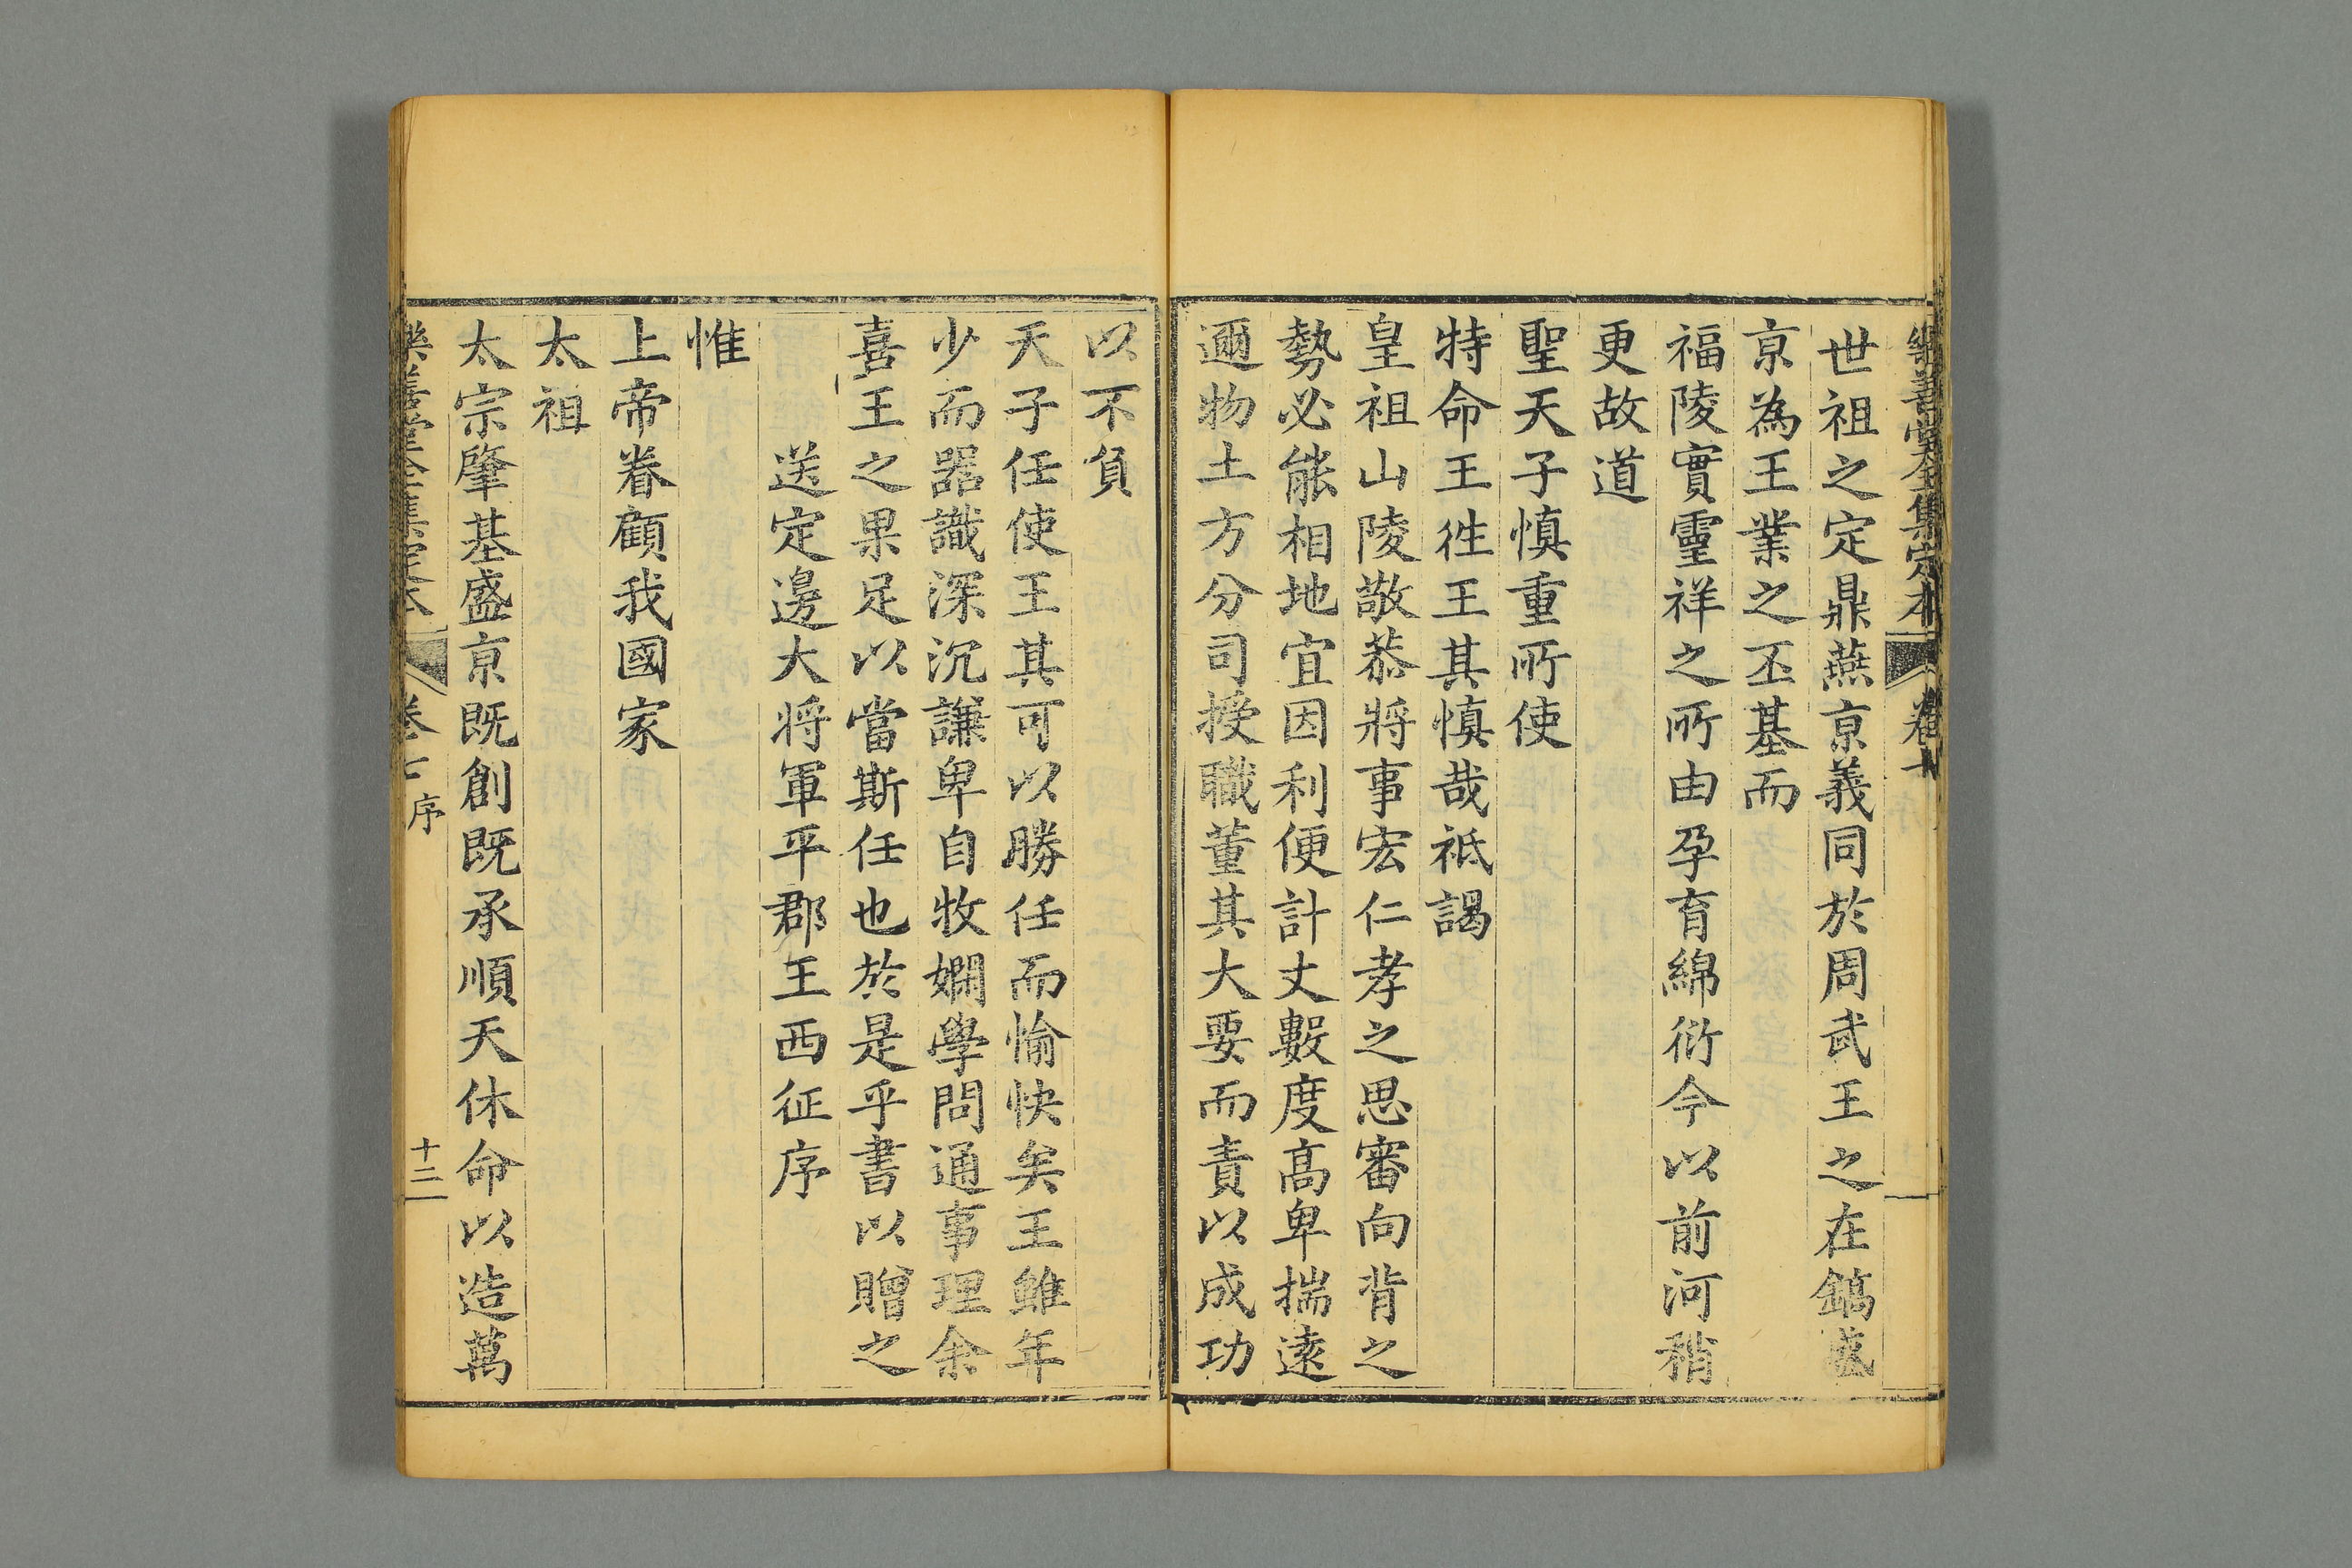 樂善堂全集定本
卷七
世祖之定鼎燕京義同於周武王之在鎬盛
京為王業之丕基而
福陵實靈祥之所由孕育綿衍今以前河稍
更故道
聖天子慎重所使
特命王徃王其慎哉祗謁
皇祖山陵敬恭將事宏仁孝之思審向背之
勢必能相地宜因利便計丈數度高卑揣遠
邇物土方分司授職董其大要而責以成功
以不負
天子任使王其可以勝任而愉快矣王雖年
少而器識深沉謙卑自牧嫻學問通事理余
喜王之果足以當斯任也於是乎書以贈之
送定邊大將軍平郡王西征序
惟
上帝眷顧我國家
太祖
太宗肇基盛京既創既承順天休命以造萬
樂善堂全集定本
卷七 序
十二